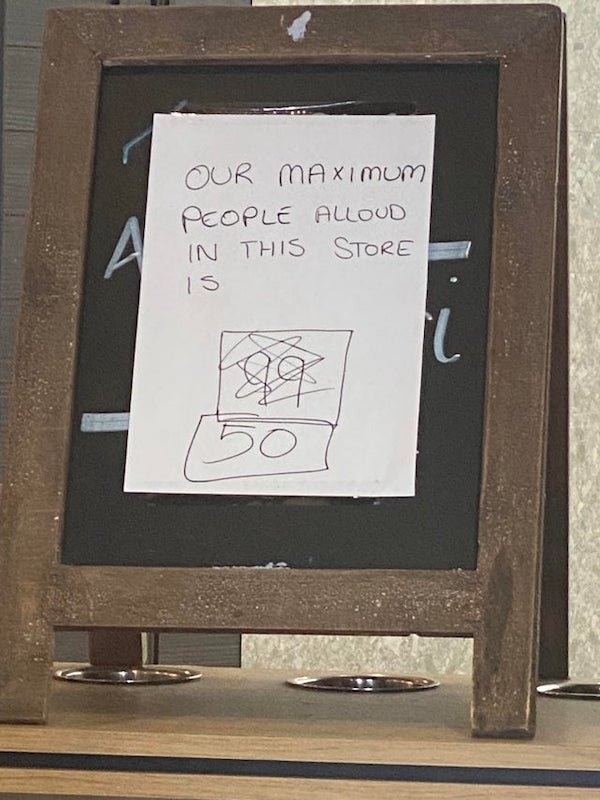 OUR MAXIMUM
PEOPLE ALLOUD
IN THIS STORE
IS
99
50